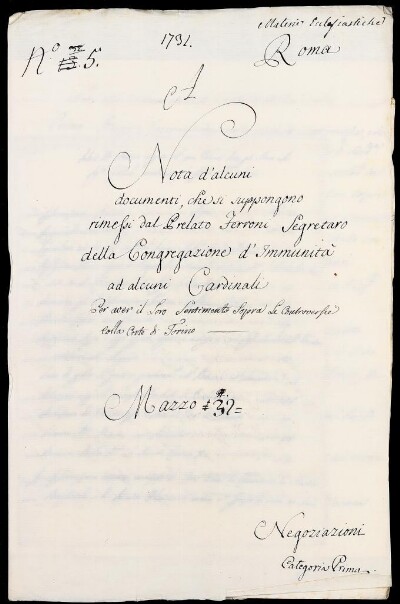 Materie Eclesiastiche
1731.
Roma
N.° 5.
Nota d'alcuni
documenti, che si suppongono
rimessi dal Prelato Ferroni Segretaro
della Congregazione d'Immunità
ad alcuni Cardinali
Per aver il loro Sentimento Sopra Le Controversie
colla Corte di Torino
Mazzo 32
Negoziazioni
Categoria Prima